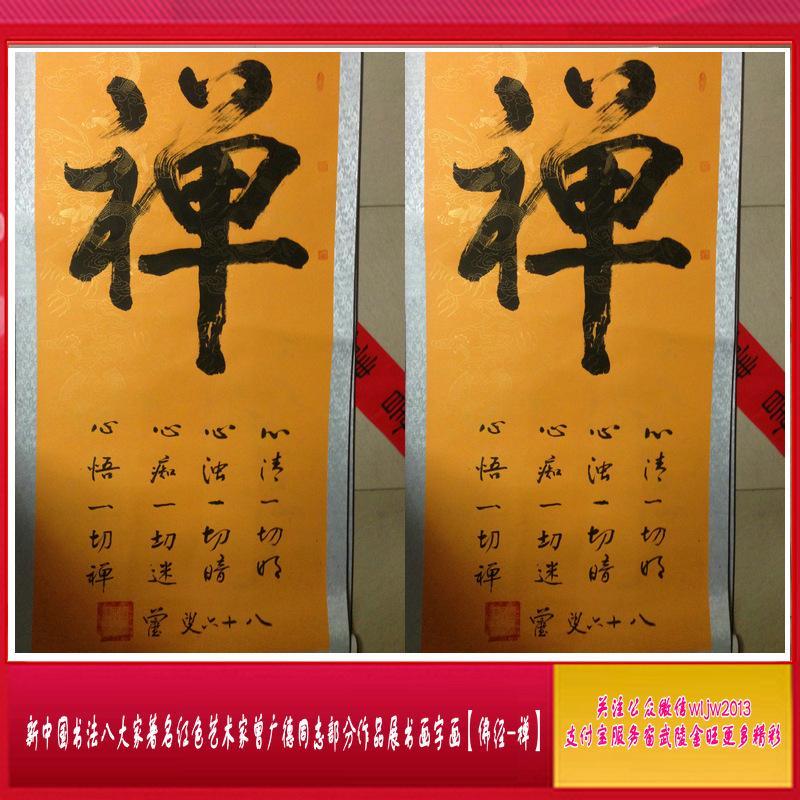 禅
心清一切明
心浊一切暗
心痴一切迷
心悟一切禅
叟六十八
禅
心清一切明
心浊一切暗
心痴一切迷
心悟一切禅
叟六十八
新中国书法八大家著名红色艺术家曾广德同志部分作品展书画字画【佛经-禅】
关注公众微信wljw2013
支付宝服务窗武陵金旺更多精彩